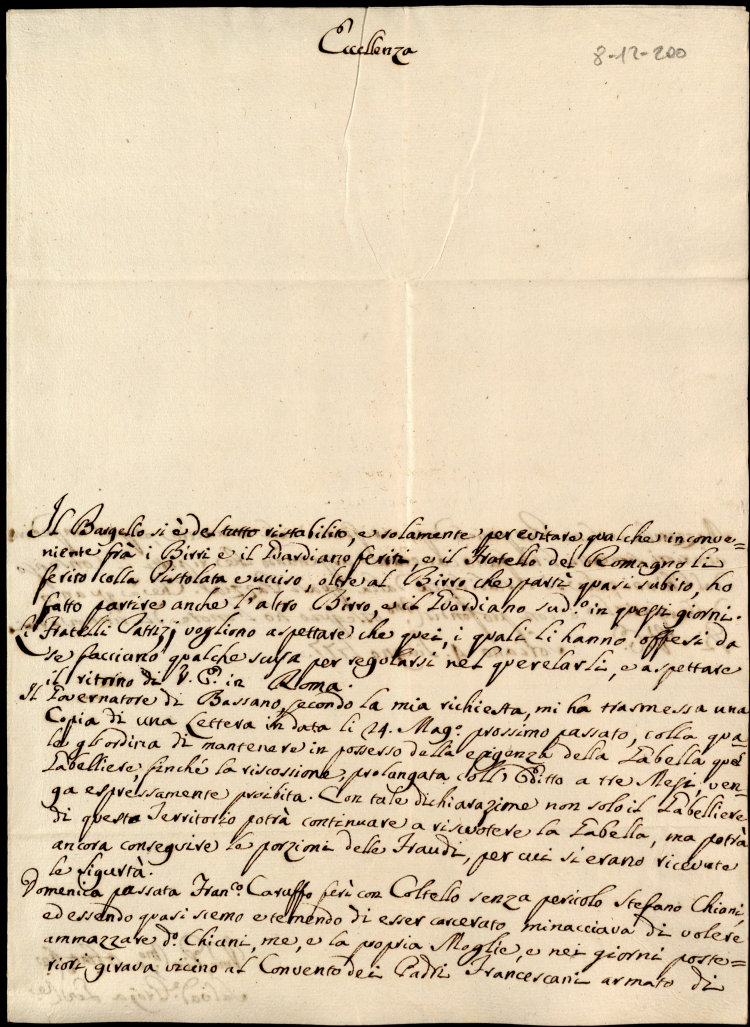 Eccellenza
8-12-200
Il Bargello si è del tutto ristabilito, e solamente per evitare qualche inconve=
niente frà i Birri e il Guardiano feriti, e il Fratello del Romagnoli
ferito colla Pistolata e ucciso, oltre al Birro che partì quasi subito, ho
fatto partire anche l'altro Birro, e il Guardiano sud.º in questi giorni.
Li Fratelli Patrizj vogliono aspettare che quei, i quali li hanno offesi da
se facciano qualche scusa per regolarsi nel querelarli, e aspettare
il ritorno di V. E. in Roma.
Il Governatore di Bassano, secondo la mia richiesta, mi ha trasmessa una
Copia di una Lettera in data li 24. Mag.º prossimo passato, colla qua=
le gli ordina di mantenere in possesso della esigenza della Gabella quel
Gabelliere, finché la riscossione, prolangata coll'Editto a tre Mesi, ven=
ga espressamente proibita. Con tale dichiarazione non solo il Gabelliere
di questo Territorio potrà continuare a riscuotere la Gabella, ma potrà
ancora conseguire le porzioni delle Fraudi, per cui si erano ricevute
le Sigurtà.
Domenica passata Fran.co Caraffo ferì con Coltello senza pericolo Stefano Chiani,
ed essendo quasi scemo e temendo di esser carcerato, minacciava di volere
ammazzare d.º Chiani, me, e la propria Moglie, e nei giorni poste=
riori girava vicino al Convento dei Padri Francescani armato di